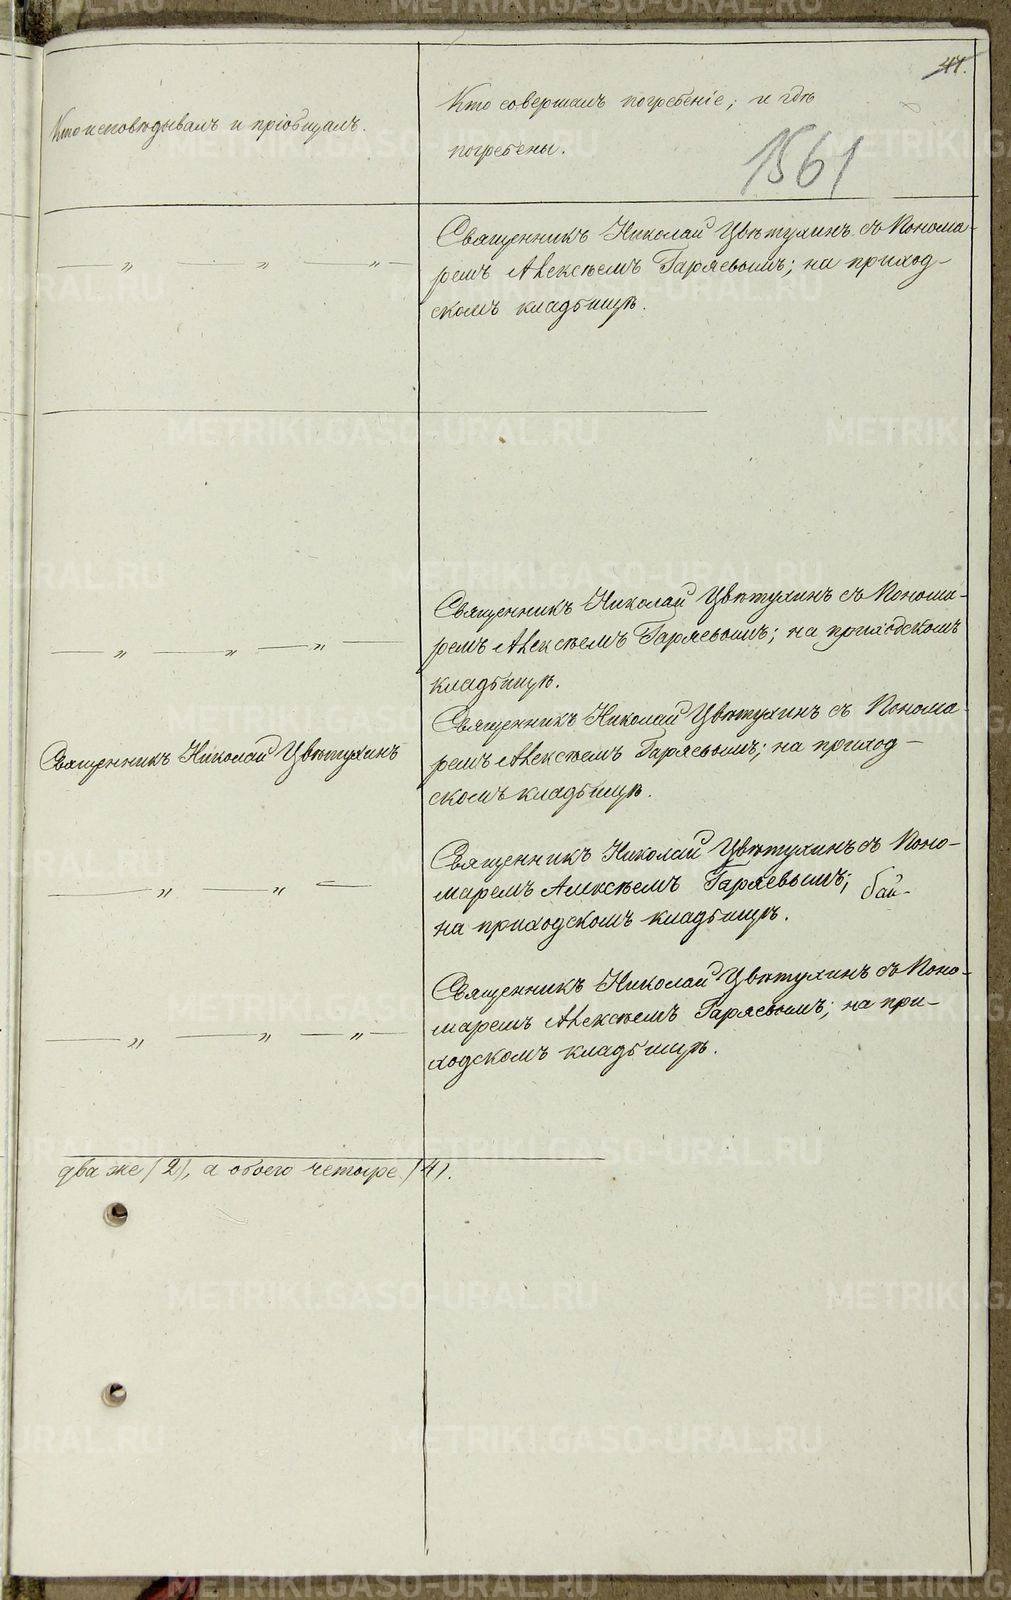 41.
Кто исповѣдывалъ и пріобщалъ.
Кто совершалъ погребеніе, и гдѣ
погребены.
1561
— „ — „ — „ —
Священникъ Николай Цвѣтухинъ съ Понома-
ремъ Алексѣемъ Гаряевымъ; на приход-
скомъ кладбищѣ.
— „ — „ — „ —
Священникъ Николай Цвѣтухинъ съ Понома-
ремъ Алексѣемъ Гаряевымъ; на приходскомъ
кладбищѣ.
Священникъ Николай Цвѣтухинъ
Священникъ Николай Цвѣтухинъ съ Понома-
ремъ Алексѣемъ Гаряевымъ; на приход-
скомъ кладбищѣ.
— „ — „ —
Священникъ Николай Цвѣтухинъ съ Поно-
маремъ Алексѣемъ Гаряевымъ;
на приходскомъ кладбищѣ.
— „ — „ — „ —
Священникъ Николай Цвѣтухинъ съ Поно-
маремъ Алексѣемъ Гаряевымъ; на при-
ходскомъ кладбищѣ.
два же (2), а обоего четыре (4).
METRIKI.GASO-URAL.RU